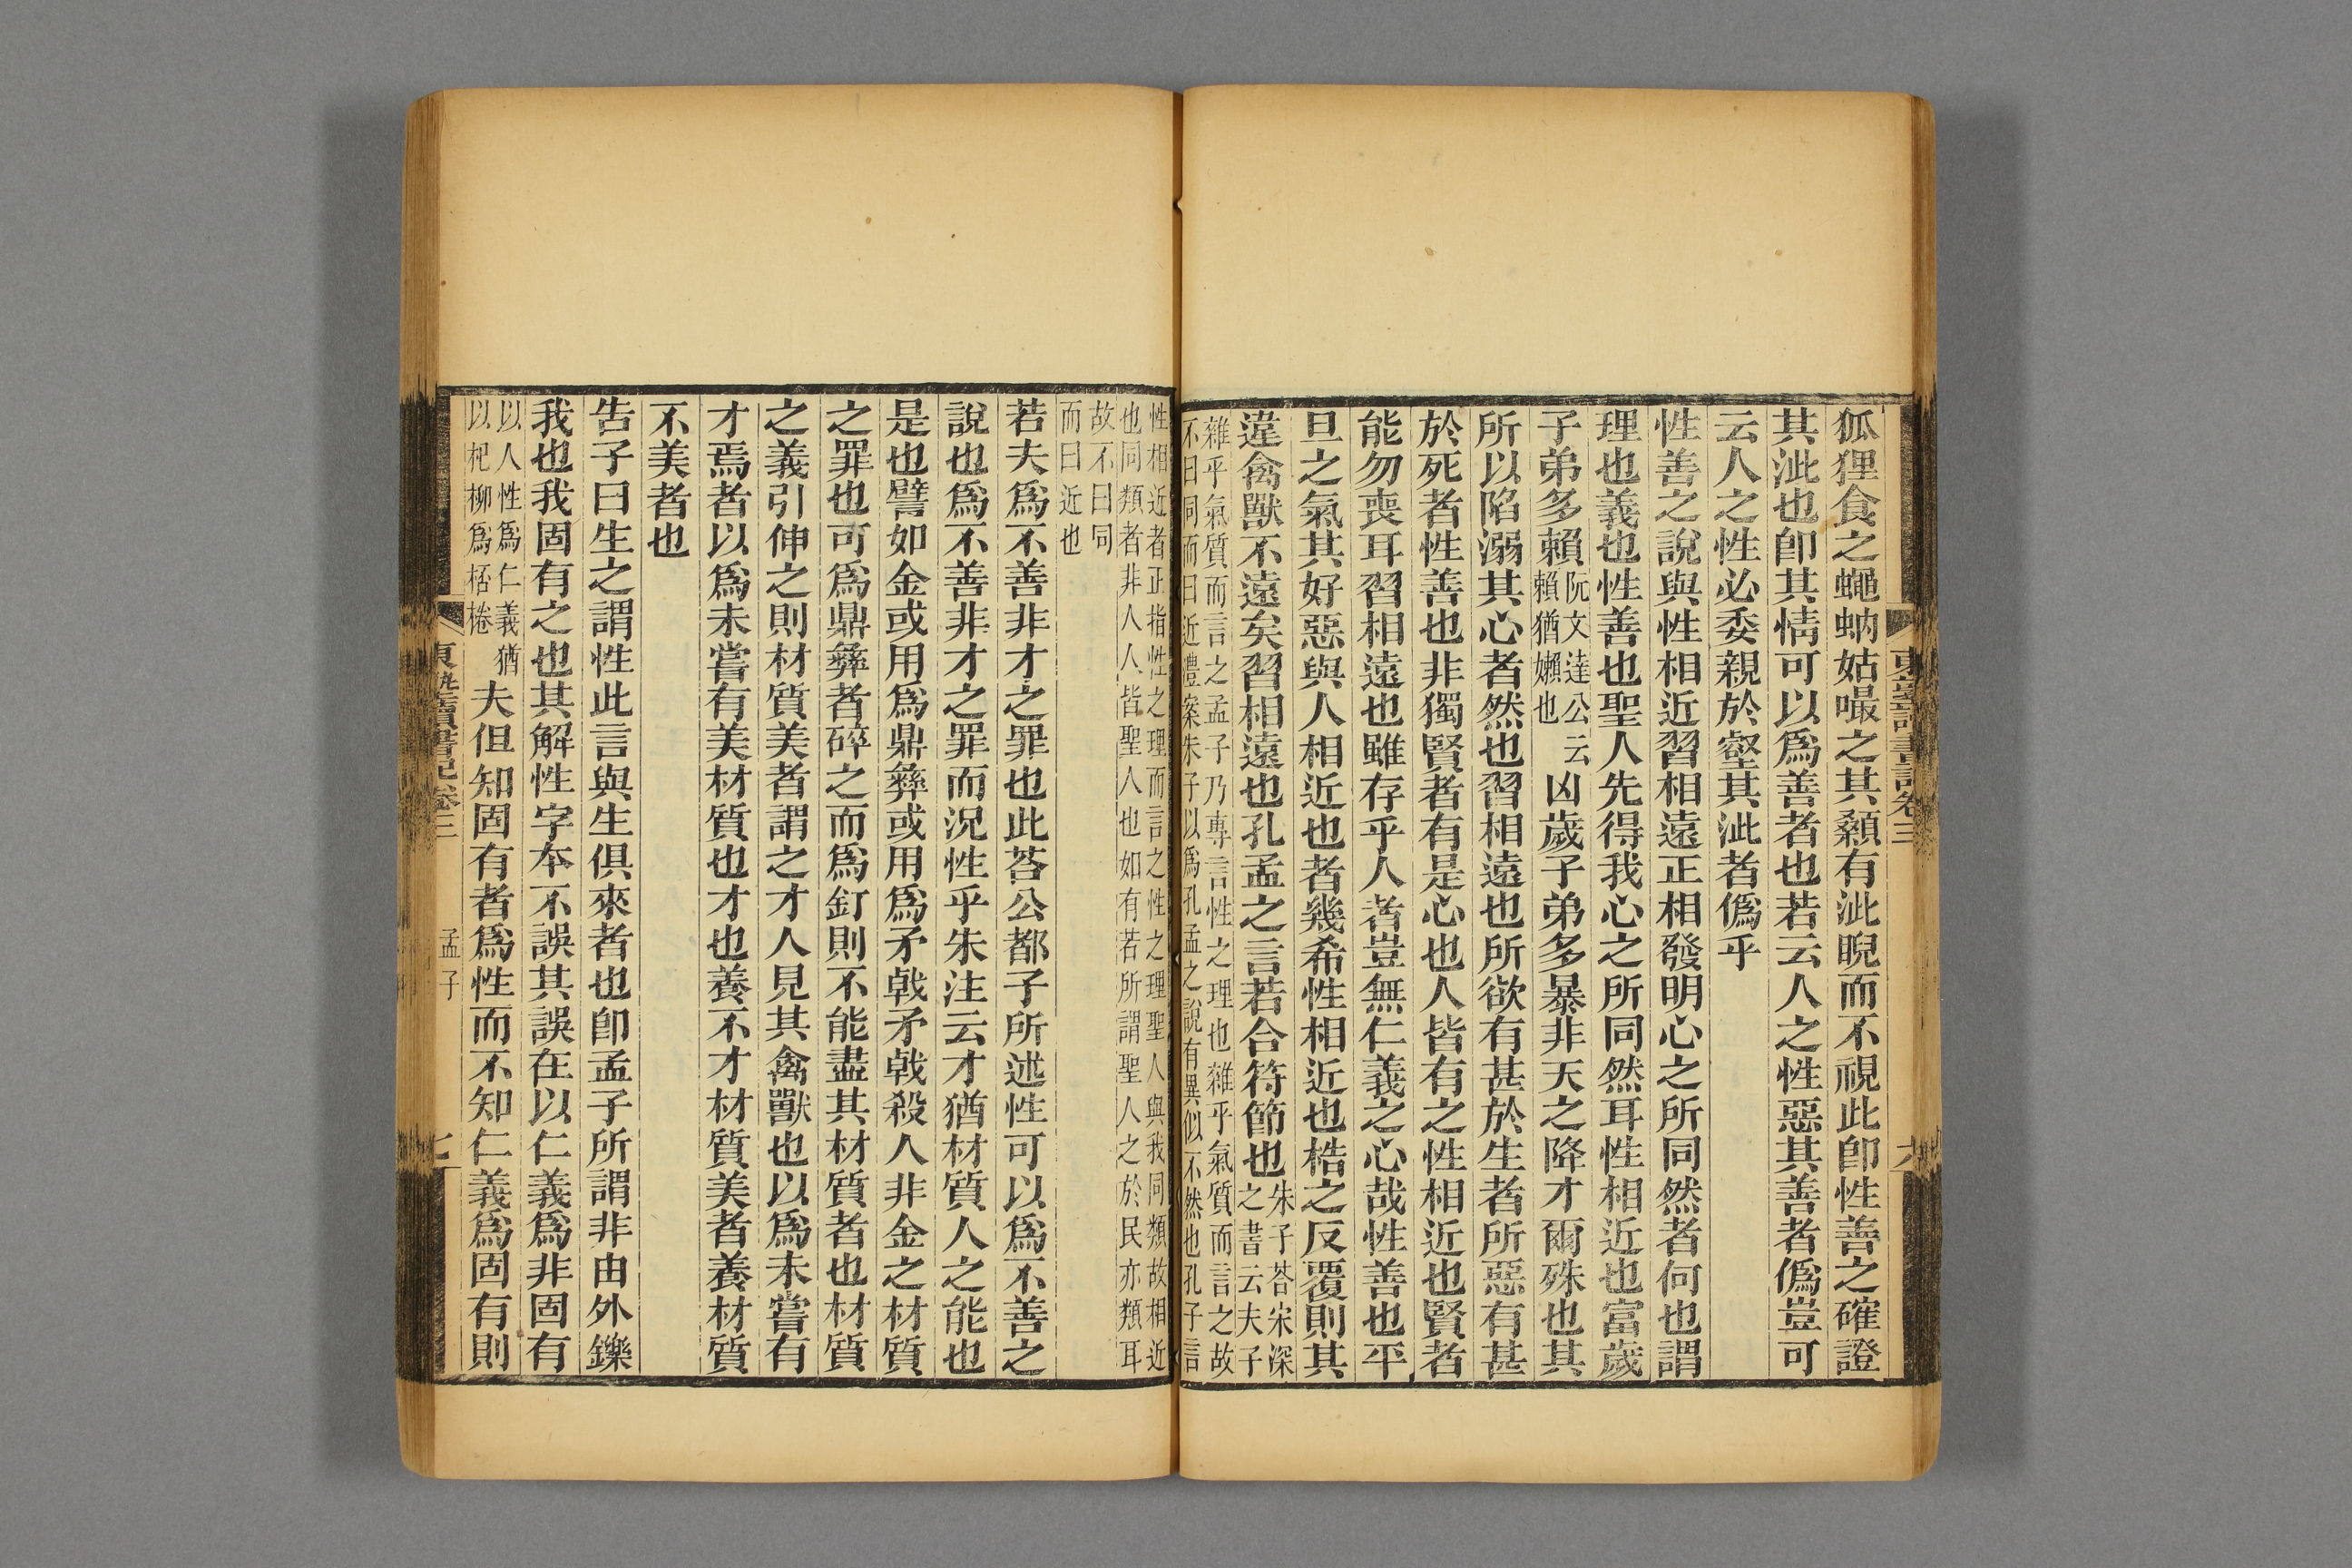 狐狸食之蠅蚋姑嘬之其顙有泚睨而不視此卽性善之確證
其泚也卽其情可以爲善者也若云人之性惡其善者僞豈可
云人之性必委親於壑其泚者僞乎
性善之說與性相近習相遠正相發明心之所同然者何也謂
理也義也性善也聖人先得我心之所同然耳性相近也富歲
子弟多賴阮文達公云賴猶嬾也凶歲子弟多暴非天之降才爾殊也其
所以陷溺其心者然也習相遠也所欲有甚於生者所惡有甚
於死者性善也非獨賢者有是心也人皆有之性相近也賢者
能勿喪耳習相遠也雖存乎人者豈無仁義之心哉性善也平
旦之氣其好惡與人相近也者幾希性相近也梏之反覆則其
違禽獸不遠矣習相遠也孔孟之言若合符節也朱子荅宋深之書云夫子
雜乎氣質而言之孟子乃專言性之理也雜乎氣質而言之故
不曰同而曰近澧案朱子以爲孔孟之說有異似不然也孔子言
性相近者正指性之理而言之性之理聖人與我同類故相近
也同類者非人人皆聖人也如有若所謂聖人之於民亦類耳
故不曰同
而曰近也
若夫爲不善非才之罪也此荅公都子所述性可以爲不善之
說也爲不善非才之罪而況性乎朱注云才猶材質人之能也
是也譬如金或用爲鼎彝或用爲矛戟矛戟殺人非金之材質
之罪也可爲鼎彝者碎之而爲釘則不能盡其材質者也材質
之義引伸之則材質美者謂之才人見其禽獸也以爲未嘗有
才焉者以爲未嘗有美材質也才也養不才材質美者養材質
不美者也
告子曰生之謂性此言與生俱來者也卽孟子所謂非由外鑠
我也我固有之也其解性字本不誤其誤在以仁義爲非固有
以人性爲仁義猶以杞柳爲桮棬夫但知固有者爲性而不知仁義爲固有則
東塾讀書記卷三
孟子
七
東塾讀書記卷三
六